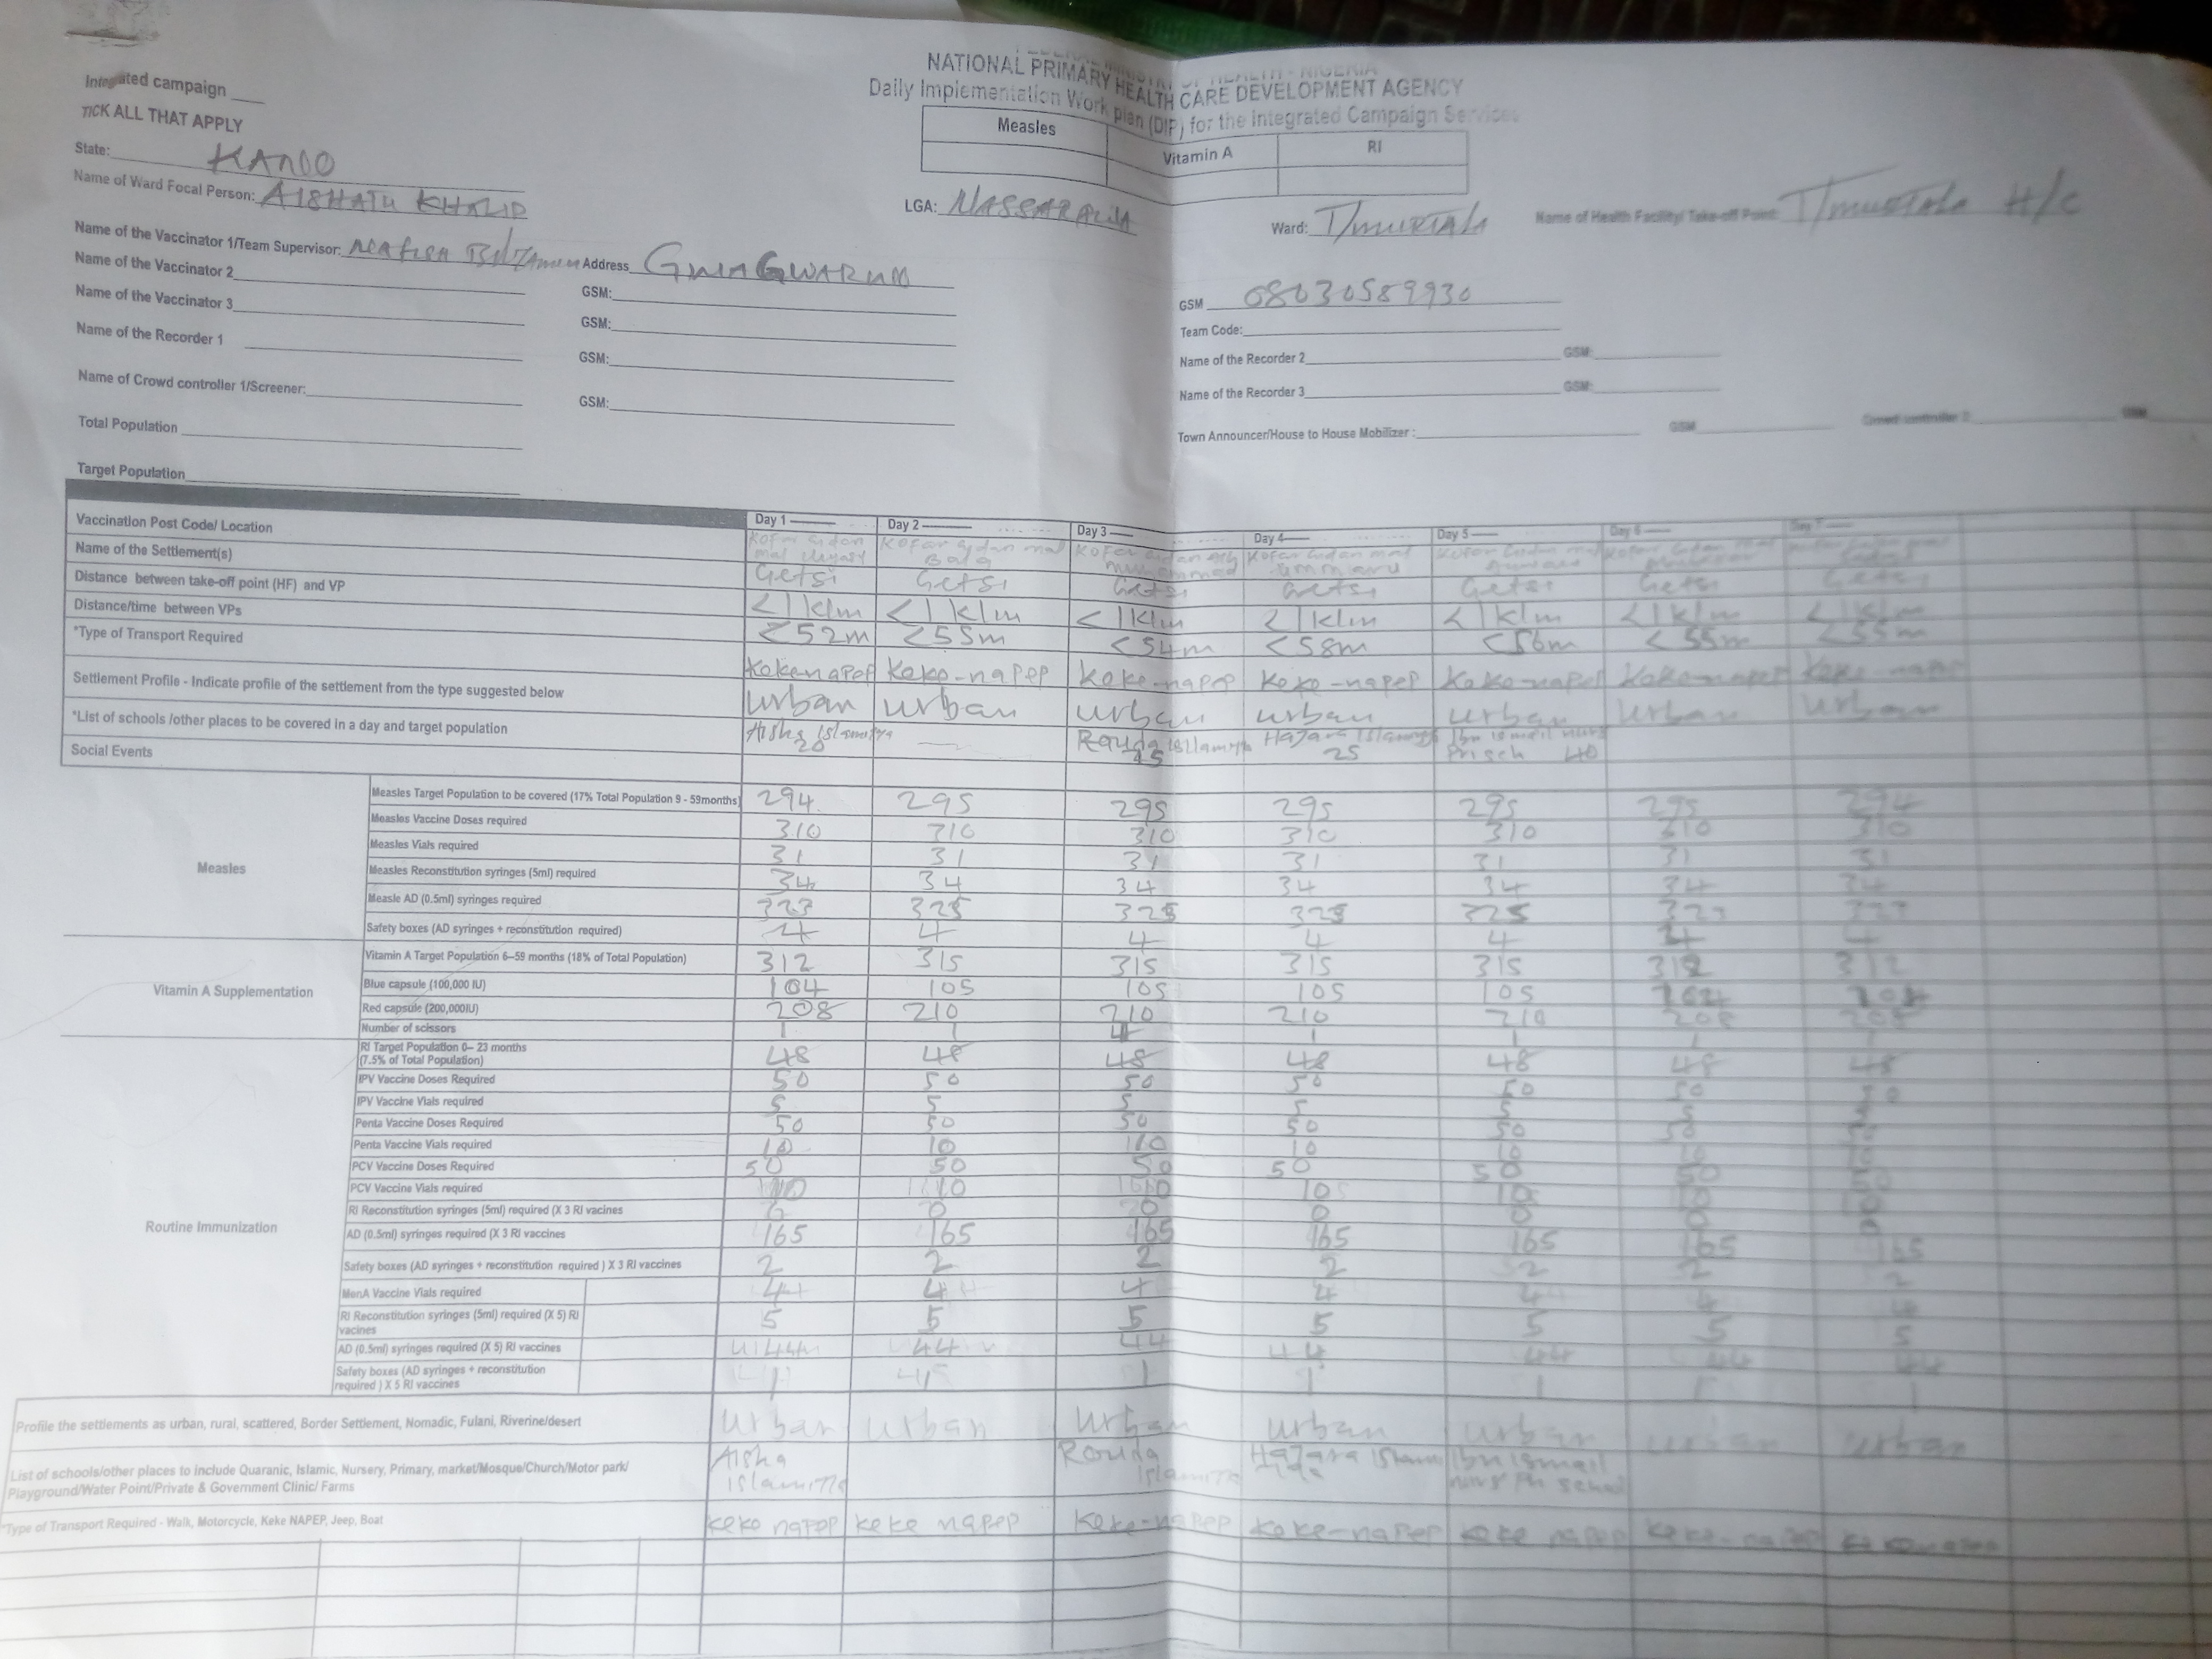 Integrated campaign
TICK ALL THAT APPLY
NATIONAL PRIMARY HEALTH CARE DEVELOPMENT AGENCY
Daily Implementation Work plan (DIP) for the Integrated Campaign Services
Measles Vitamin A RI
State: KANO
Name of Ward Focal Person: AISHATU KHALID
LGA: NASSARAWA Ward: T/MURTALA Name of Health Facility/ Take-off Point: T/murtala H/C
Name of the Vaccinator 1/Team Supervisor: Address GWAGWARWA GSM 08030589930
Name of the Vaccinator 2 GSM: Team Code:
Name of the Vaccinator 3 GSM: Name of the Recorder 2 GSM:
Name of the Recorder 1 GSM: Name of the Recorder 3 GSM:
Name of Crowd controller 1/Screener: GSM: Town Announcer/House to House Mobilizer : GSM GSM
Total Population
Target Population
Day 1 Day 2 Day 3 Day 4 Day 5 Day 6 Day 7
Vaccination Post Code/ Location
Name of the Settlement(s) Getsi Getsi Getsi Getsi Getsi Getsi Getsi
Distance between take-off point (HF) and VP <1klm <1klm <1klm <1klm <1klm <1klm <1klm
Distance/time between VPs <52m <55m <54m <58m <56m <55m <55m
*Type of Transport Required Kokenapep Keke-napep Keke-napep Keke-napep Keke-napep Keke-napep
Settlement Profile - Indicate profile of the settlement from the type suggested below urban urban urban urban urban urban urban
*List of schools /other places to be covered in a day and target population Aisha Islamiyya 20 Rauda Islamiyya Hajara 25 40
Social Events
Measles
Measles Target Population to be covered (17% Total Population 9 - 59months) 294 295 295 295 295 295 294
Measles Vaccine Doses required 310 310 310 310 310 310 310
Measles Vials required 31 31 31 31 31 31 31
Measles Reconstitution syringes (5ml) required 34 34 34 34 34 34 34
Measle AD (0.5ml) syringes required 323 325 325 325 325
Safety boxes (AD syringes + reconstitution required) 4 4 4 4 4 4 4
Vitamin A Supplementation
Vitamin A Target Population 6–59 months (18% of Total Population) 312 315 315 315 315 312 312
Blue capsule (100,000 IU) 104 105 105 105 105 104 104
Red capsule (200,000IU) 208 210 210 210 210 208 208
Number of scissors 1 1 1 1 1 1
Routine Immunization
RI Target Population 0– 23 months
(7.5% of Total Population) 48 48 48 48 48 48 48
IPV Vaccine Doses Required 50 50 50 50 50 50 50
IPV Vaccine Vials required 5 5 5 5 5 5 5
Penta Vaccine Doses Required 50 50 50 50 50 50 50
Penta Vaccine Vials required 10 10 10 10 10 10 10
PCV Vaccine Doses Required 50 50 50 50 50 50 50
PCV Vaccine Vials required 10 10 10 10
RI Reconstitution syringes (5ml) required (X 3 RI vacines 0 0 0 0 0 0 0
AD (0.5ml) syringes required (X 3 RI vaccines 165 165 165 165 165 165 165
Safety boxes (AD syringes + reconstitution required ) X 3 RI vaccines 2 2 2 2 2 2 2
MenA Vaccine Vials required 4 4 4 4 4 4 4
RI Reconstitution syringes (5ml) required (X 5) RI
vacines 5 5 5 5 5 5 5
AD (0.5ml) syringes required (X 5) RI vaccines 44 44 44 44 44 44 44
Safety boxes (AD syringes + reconstitution
required ) X 5 RI vaccines 1 1 1 1 1 1 1
Profile the settlements as urban, rural, scattered, Border Settlement, Nomadic, Fulani, Riverine/desert urban urban urban urban urban urban urban
List of schools/other places to include Quaranic, Islamic, Nursery, Primary, market/Mosque/Church/Motor park/
Playground/Water Point/Private & Government Clinic/ Farms Aisha Rouda Hajara Ibn Ismail
*Type of Transport Required - Walk, Motorcycle, Keke NAPEP, Jeep, Boat Keke napep Keke napep Keke-napep Keke-napep Keke napep Keke-napep